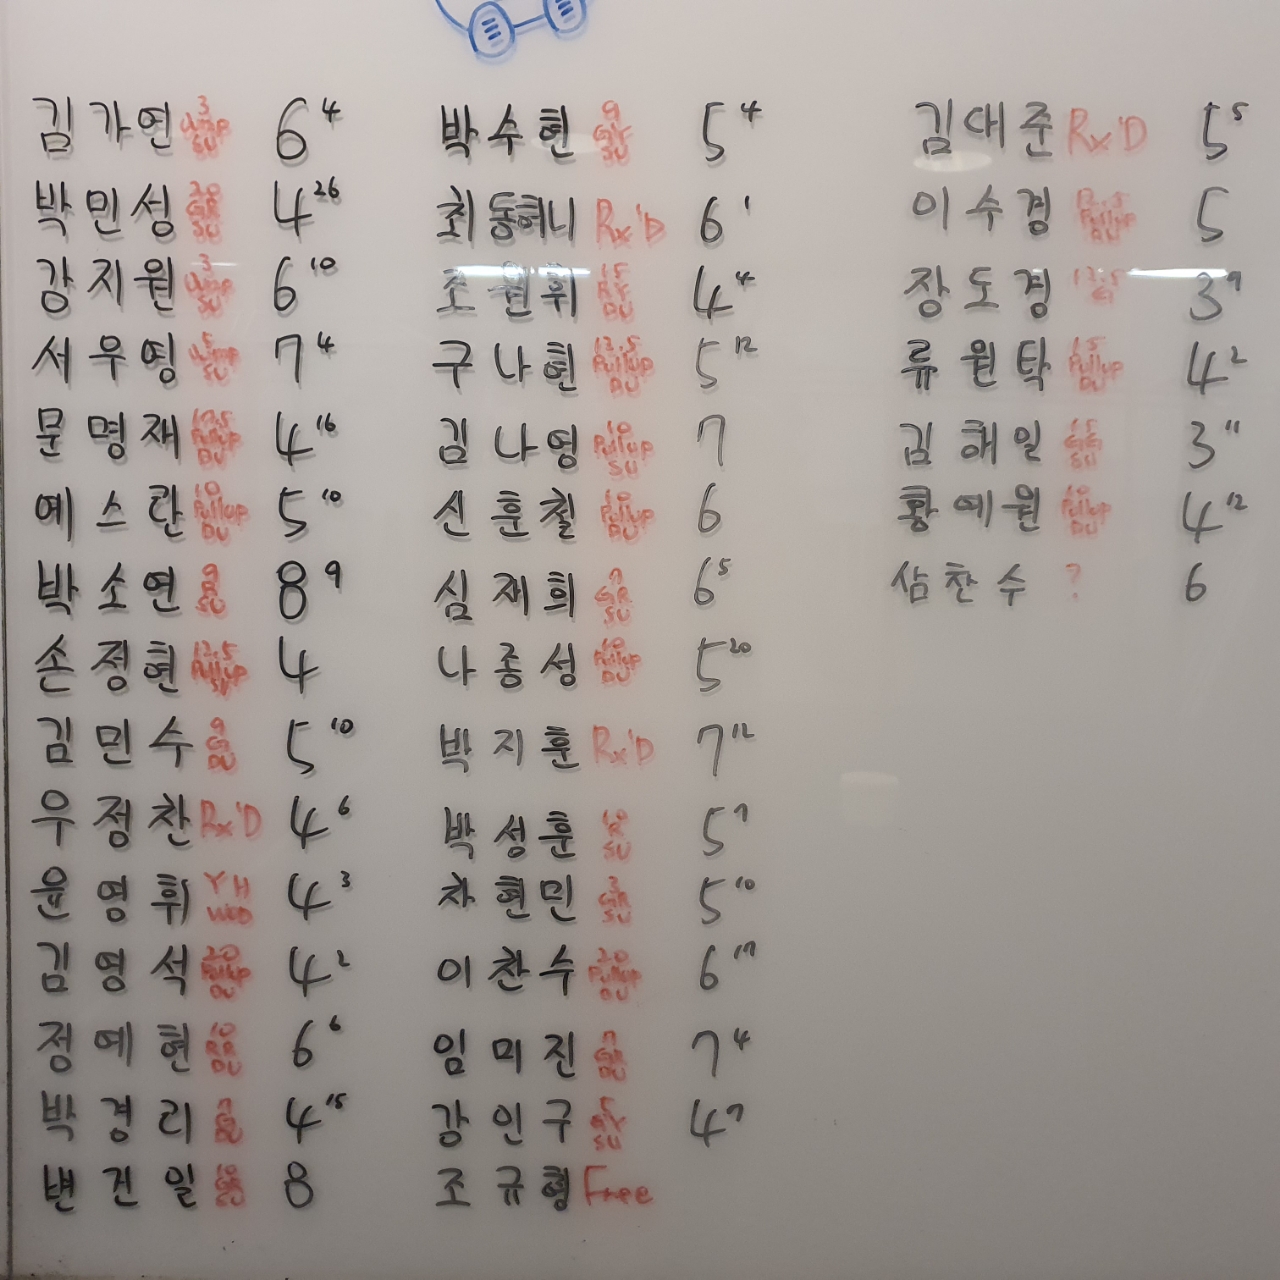 김가연 3 Jump SU 6 4
박민성 20 GR SU 4 26
강지원 3 Jump SU 6 10
서우영 5 Jump SU 7 4
문명재 17.5 Pullup DU 4 16
예스란 10 Pullup DU 5 10
박소연 9 R SU 8 9
손정현 12.5 Pullup SU 4
김민수 9 G DU 5 10
우정찬 Rx'D 4 6
윤영휘 YH WOD 4 3
김영석 20 Pullup DU 4 2
정예현 10 RR DU 6 6
박경리 7 DU 4 15
변건일 10 8
박수현 9 GY SU 5 4
최동혀니 Rx'D 6 1
조원휘 15 DU 4 4
구나현 12.5 Pullup DU 5 12
김나영 10 Pullup SU 7
신훈철 10 Pullup DU 6
심재희 7 GR SU 6 5
나종성 10 Pullup DU 5 20
박지훈 Rx'D 7 12
박성훈 10 R SU 5 7
차현민 3 GR SU 5 10
이찬수 20 Pullup DU 6 17
임미진 7 GR DU 7 4
강인구 5 SU 4 7
조규형 Free
김대준 Rx'D 5 5
이수경 12.5 Pullup DU 5
장도경 12.5 G 3 9
류원탁 15 Pullup DU 4 2
김해일 15 GG SU 3 11
황예원 10 Pullup DU 4 12
삼찬수 ? 6